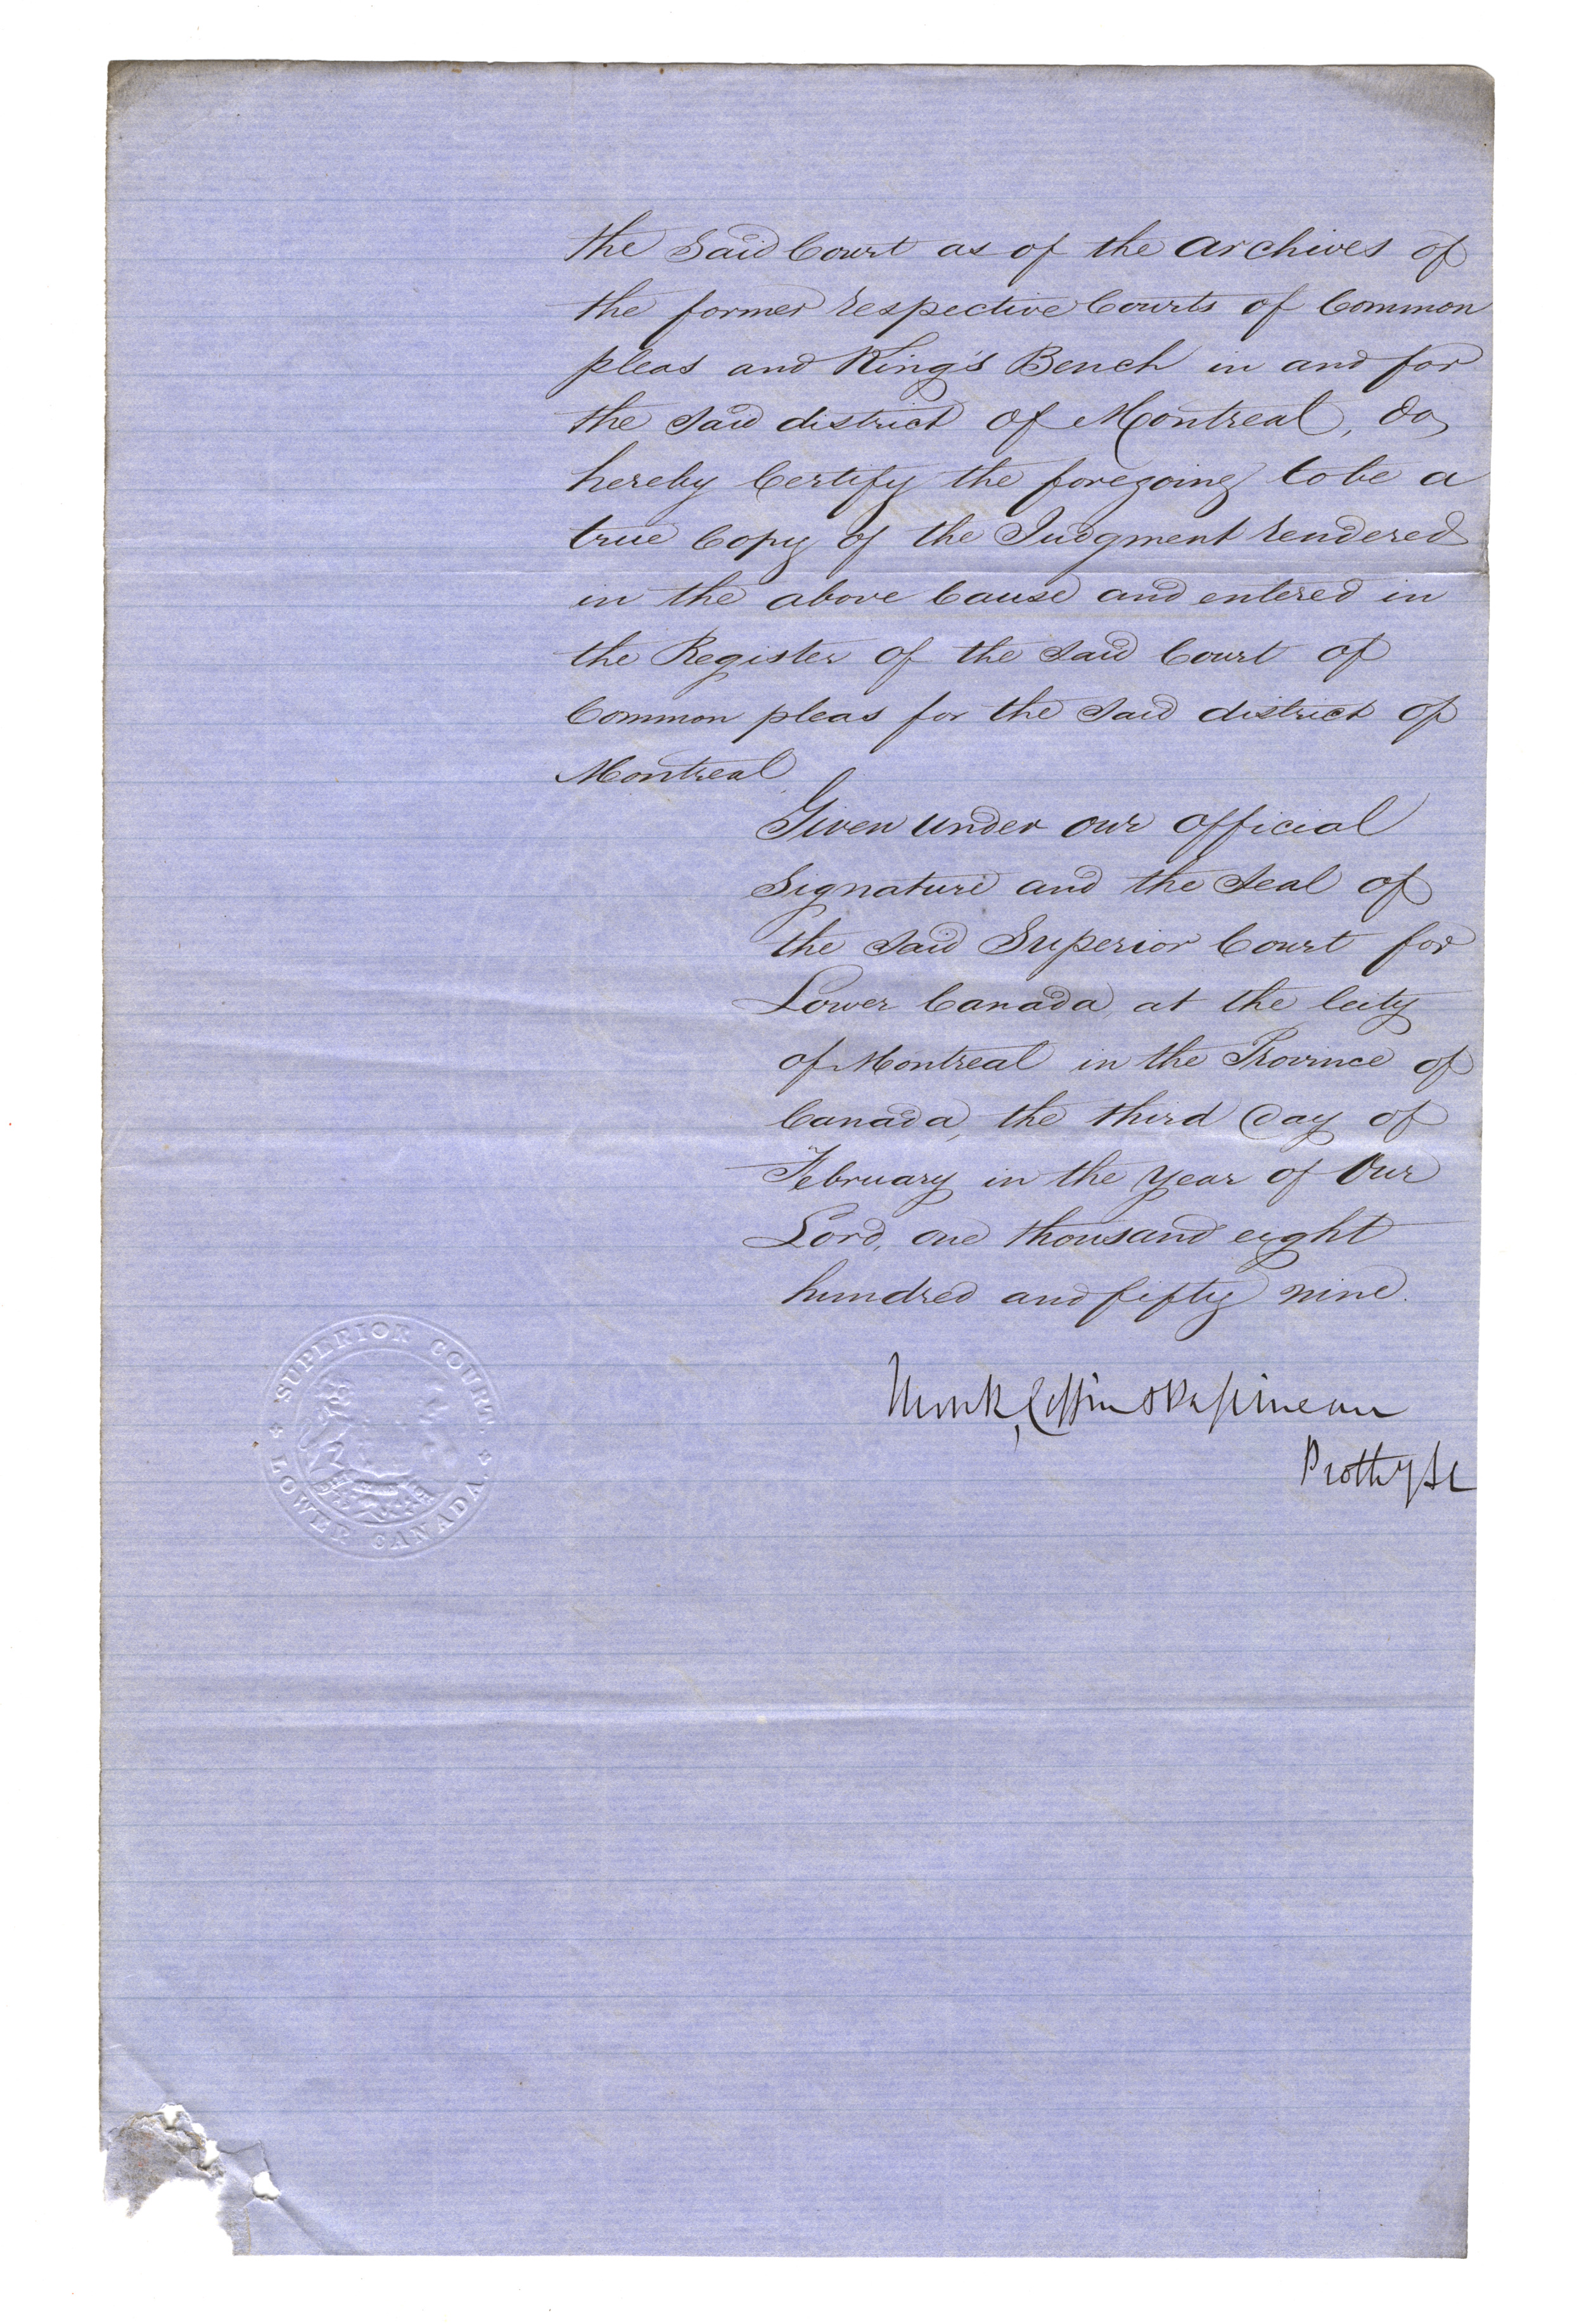 the Said Court as of the archives of
the former respective Courts of Common
pleas and King's Bench in and for
the Said district of Montreal, do
hereby Certify the foregoing to be a
true Copy of the Judgment rendered
in the above Cause and entered in
the Register of the Said Court of
Common pleas for the Said district of
Montreal
Given under our official
Signature and the Seal of
the Said Superior Court for
Lower Canada, at the City
of Montreal in the Province of
Canada, the third day of
February in the year of Our
Lord, one thousand eight
hundred and fifty nine.
Monk, Coffin & Papineau
Prothy S C
SUPERIOR COURT.
LOWER CANADA